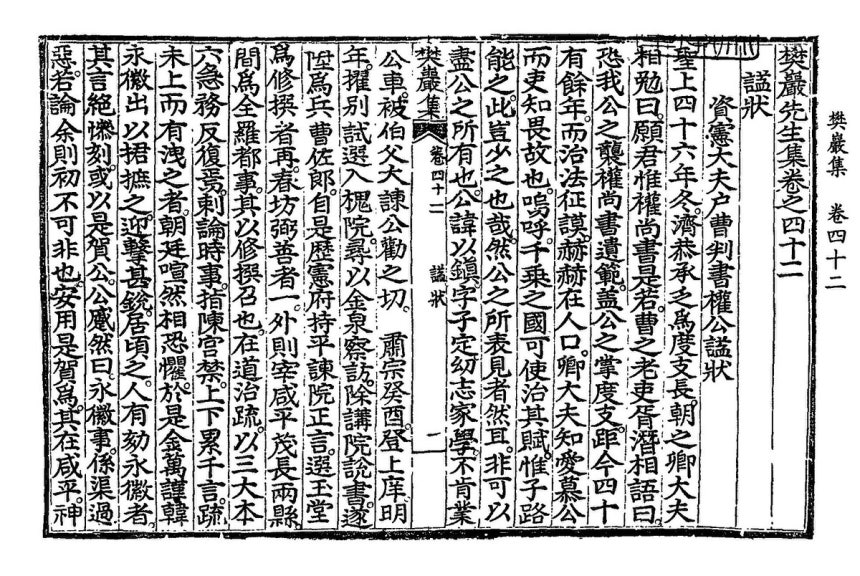 樊巖集 卷四十二
樊巖先生集卷之四十二
諡狀
資憲大夫户曹判書權公諡狀
聖上四十六年冬。濟恭承乏爲度支長。朝之卿大夫
相勉曰。願君惟權尚書是若。曹之老吏胥潛相語曰。
恐我公之襲權尚書遺範。盖公之掌度支。距今四十
有餘年。而治法征謨。赫赫在人口。卿大夫知愛慕公
而吏知畏故也。嗚呼。千乘之國可使治其賦。惟子路
能之。此豈少之也哉。然公之所表見者然耳。非可以
盡公之所有也。公諱以鎭。字子定。幼志家學。不肯業
樊巖集 卷四十二 諡狀 一
公車。被伯父大諫公勸之切。 肅宗癸酉。登上庠。明
年。擢別試。選入槐院。尋以金泉察訪。除講院說書。遂
陞爲兵曹佐郎。自是歷憲府持平諫院正言。選玉堂
爲修撰者再。春坊弼善者一。外則宰咸平茂長兩縣。
間爲全羅都事。其以修撰召也。在道治疏。以三大本
六急務反復焉。剌論時事。指陳宮禁。上下累千言。疏
未上而有洩之者。朝廷喧然相恐懼。於是金萬謹韓
永徽出以捃摭之。迎擊甚銳。居頃之。人有劾永徽者。
其言絕慘刻。或以是賀公。公蹙然曰。永徽事。係渠過
惡。若論余則初不可非也。安用是賀爲。其在咸平。神